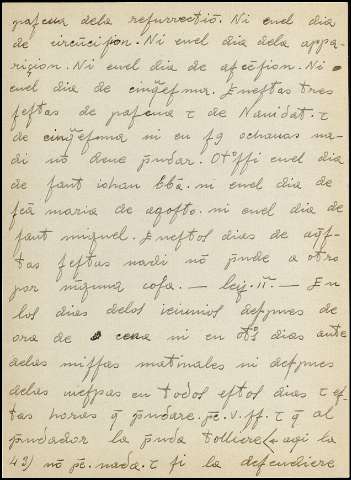 pafcua dela refurrectiõ. Ni enel dia
de circũcifion. Ni enel dia dela appa-
riçion. Ni enel dia de afcẽfion. Ni
enl̃ dia de cinq̃efma. E neftas tres
feftas de pafcua τ de Nauidat. τ
de cinq̃efma ni en fus ochauas na-
di nõ deue pñdar. Otºffi enel dia
de fant iohan bbã. ni enel dia de
fcã maria de agofto. ni enel dia de
fant miguel. E neftos dias de aq̃f-
tas feftas nadi nõ pñde a otro
por nĩguna cofa. — ley. ii. — En
los dias delos ieiunios defpues de
ora de cena ni en otºs dias ante
delas miffas matinales ni defpues
delas uefpas en todos eftos dias τ ef-
tas horas q̃ pñdare. pc̃. v. ff. τ q̃ al
pñdador la pñda tolliere (+ aqi la
43) nõ pc̃. nada. τ fi la defendiere